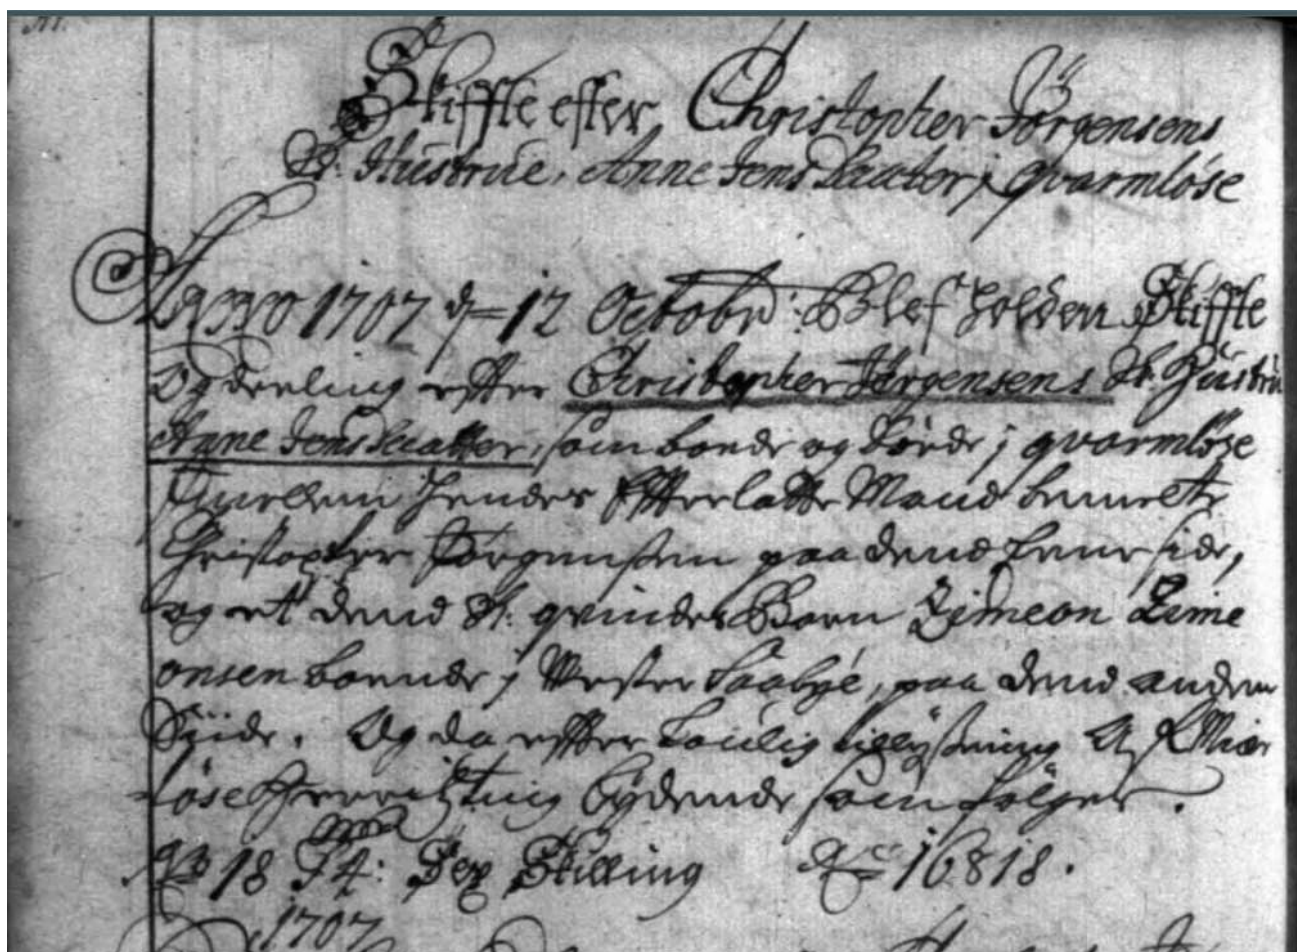 Skiffte efter Christopher Jörgensens
Sl. Hustrue, Anne Jens Daatter, j qvarmløse
Anno 1707 d 12 Octobr: Blef holden Skiffte
Og deeling effter Christopher Jørgensens Sl. Hustrue
Anne Jens Daatter, som boede og døde j qvarmløse
hendes Effterlatte Mand
Christopher Jörgensen paa dend Eene side,
og et dend Sl. qvindes Barn Zimeon Zime
onsen boende j Wester Saabye, paa dend anden
Siide. Og da effter Louglig tillysning
løse Herritz ting lydende som følger.
No 18 Sex Skilling Ao 1681
1707